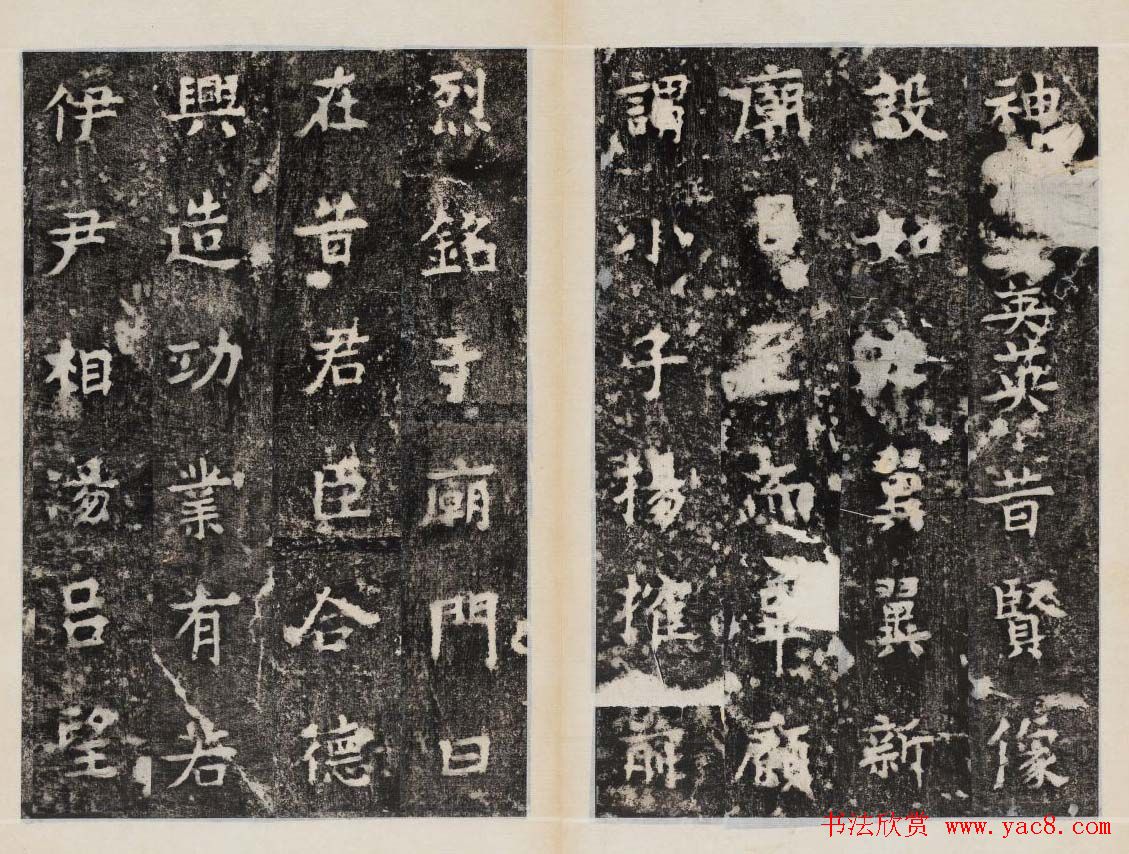 神英英昔賢像
設如翼翼新
廟日至而畢顧
謂小子揚搉前
烈銘寺廟門曰
在昔君臣合德
興造功業有若
伊尹相湯呂望
书法欣赏 www.yac8.com